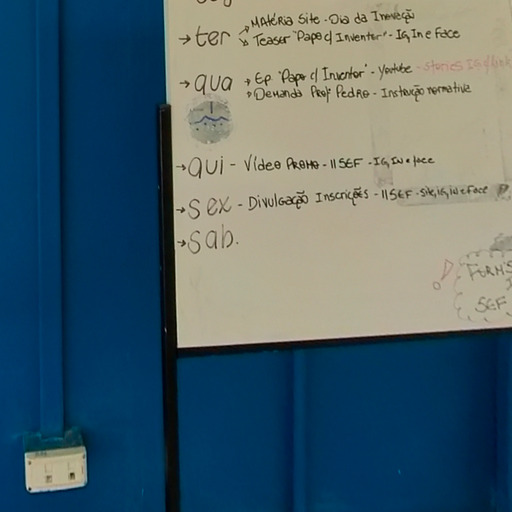 → ter → Matéria Site - Dia da Inovação
↘ Teaser "Papo c/ Inventor" - IG, In e Face
→ qua → Ep "Papo c/ Inventor" - Youtube - stories IG
→ Demanda Profº Pedro - Instrução normativa
→ qui - Vídeo Promo - II SEF - IG, IN e face
→ sex - Divulgação Inscrições - II SEF - Site, IG, IN e Face
→ sab.
SEF